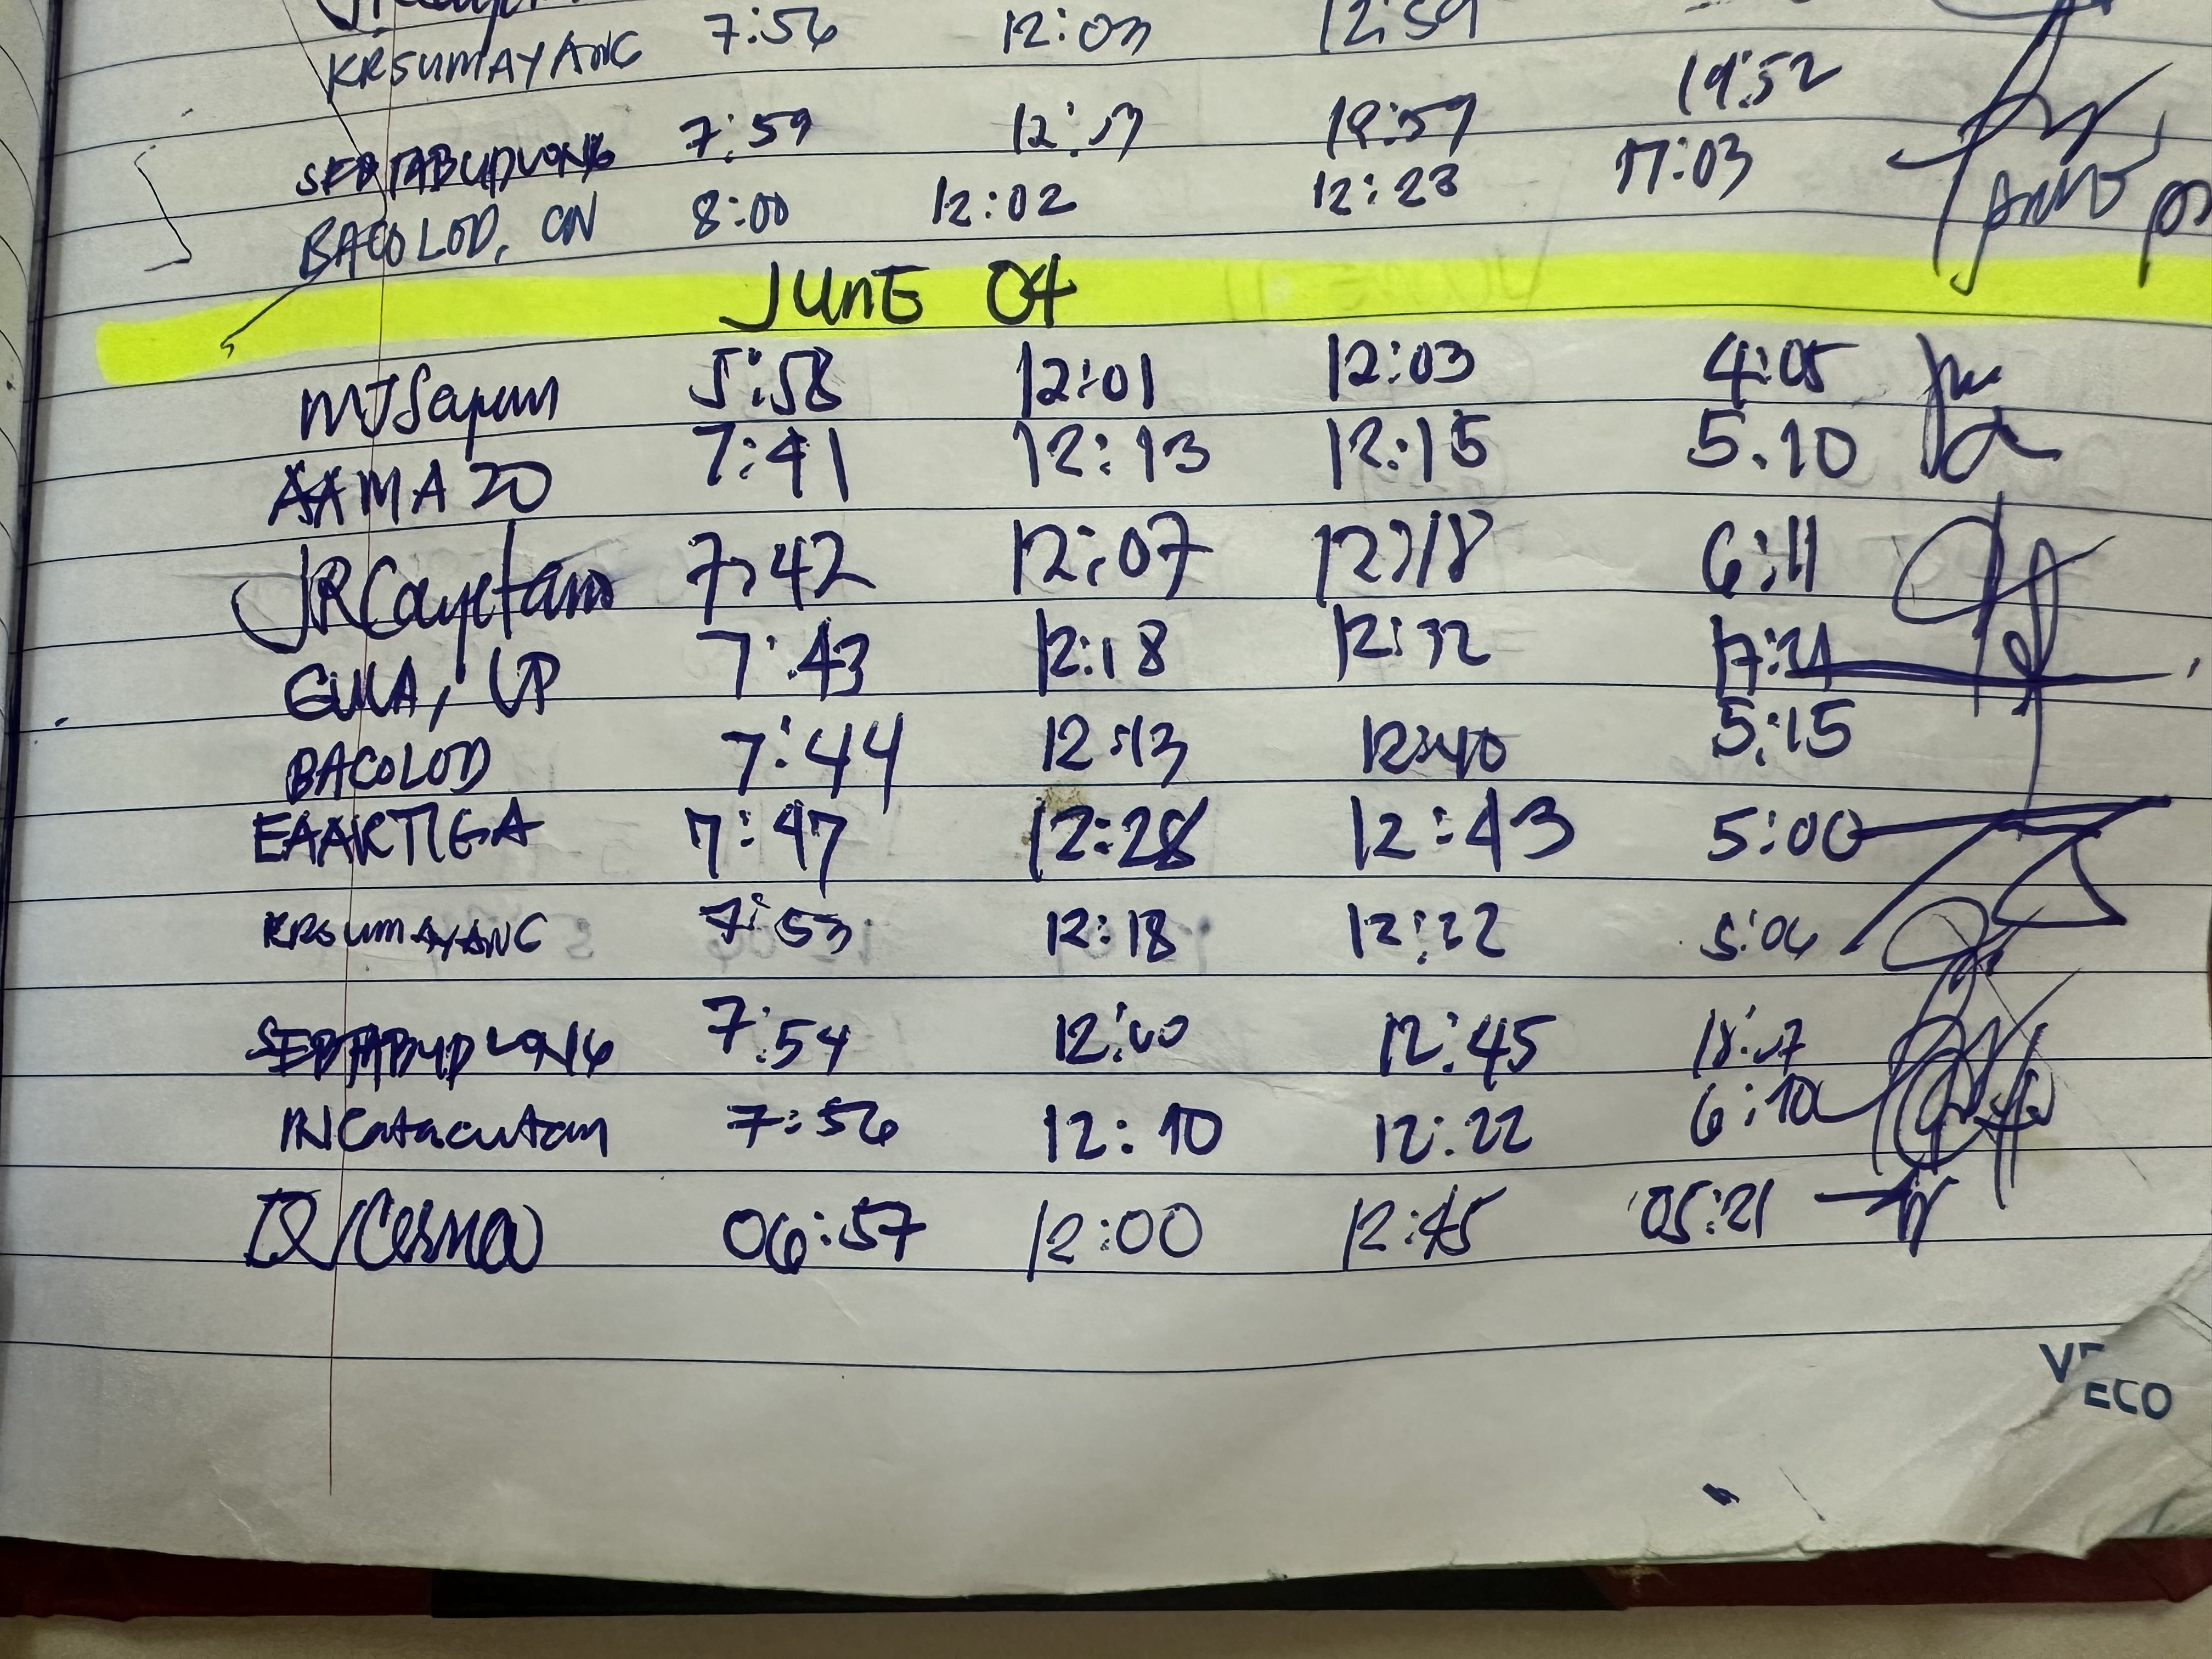 KRSUMAYANG 7:56 12:03 12:59
SEBTABUDLONG 7:59 12: 12:59 19:52
BACOLOD, CN 8:00 12:02 12:23 17:03
JUNE 04
MJSapun 5:58 12:01 12:03 4:05
AAMA 20 7:41 12:13 12:15 5.10
JRCayetano 7:42 12:07 12:18 6:11
GULA, UP 7:43 12:18 12:32 17:21
BACOLOD 7:44 12:13 12:40 5:15
EAARTIGA 7:47 12:28 12:43 5:00
KRSUMAYANG 7:53 12:18 12:22 5:06
SEBTABUDLONG 7:54 12:00 12:45 18:07
RNCatacutan 7:56 12:10 12:22 6:10
06:57 12:00 12:45 05:21
VECO